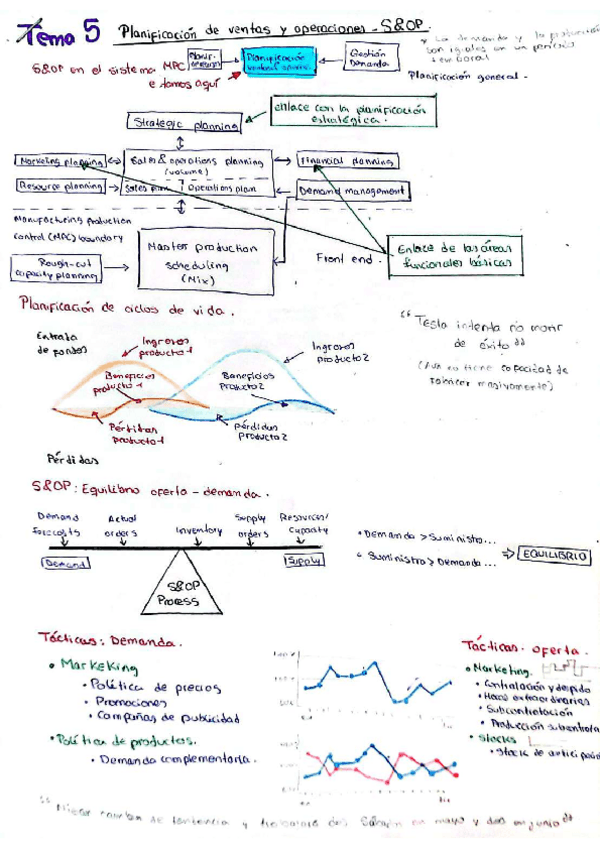 Tema 5 Planificación de ventas y operaciones - S&OP.
* La demanda y la producción
son iguales en un periodo
temporal
Gestión
Demanda
Planificación
S&OP en el sistema MPC
estamos aquí
Planificación general.
enlace con la planificación
estratégica.
Strategic planning
Marketing planning
Sales & operations planning
(volume)
Financial planning
Resource planning
Sales plan
Operations plan
Demand management
Manufacturing production
control (MPC) boundary
Master production
scheduling
(Mix)
Front end.
Enlace de las áreas
funcionales básicas
Rough-cut
capacity planning
Planificación de ciclos de vida.
Entrada
de fondos
Ingresos
producto 1
Ingresos
producto 2
Beneficios
producto 1
Beneficios
Producto 2
"Tesla intenta no morir
de éxito"
(Aún no tiene capacidad de
fabricar masivamente)
Pérdidas
producto 1
pérdidas
Producto 2
Pérdidas
S&OP: Equilibrio oferta - demanda.
Demand
Forecasts
Actual
orders
Inventory
Supply
orders
Resources/
Capacity
Demand
Supply
S&OP
Process
• Demanda > Suministro...
• Suministro > Demanda...
⇒ EQUILIBRIO
Tácticas: Demanda.
• Markeking
• Política de precios
• Promociones
• Campañas de publicidad
• Política de productos.
• Demanda complementaria.
Tácticas. oferta.
• Marketing.
• Contratación y despido
• Horas extraordinarias
• Subcontratación
• Producción
• Stocks
• Stocks de
y
en mayo y dos en junio"